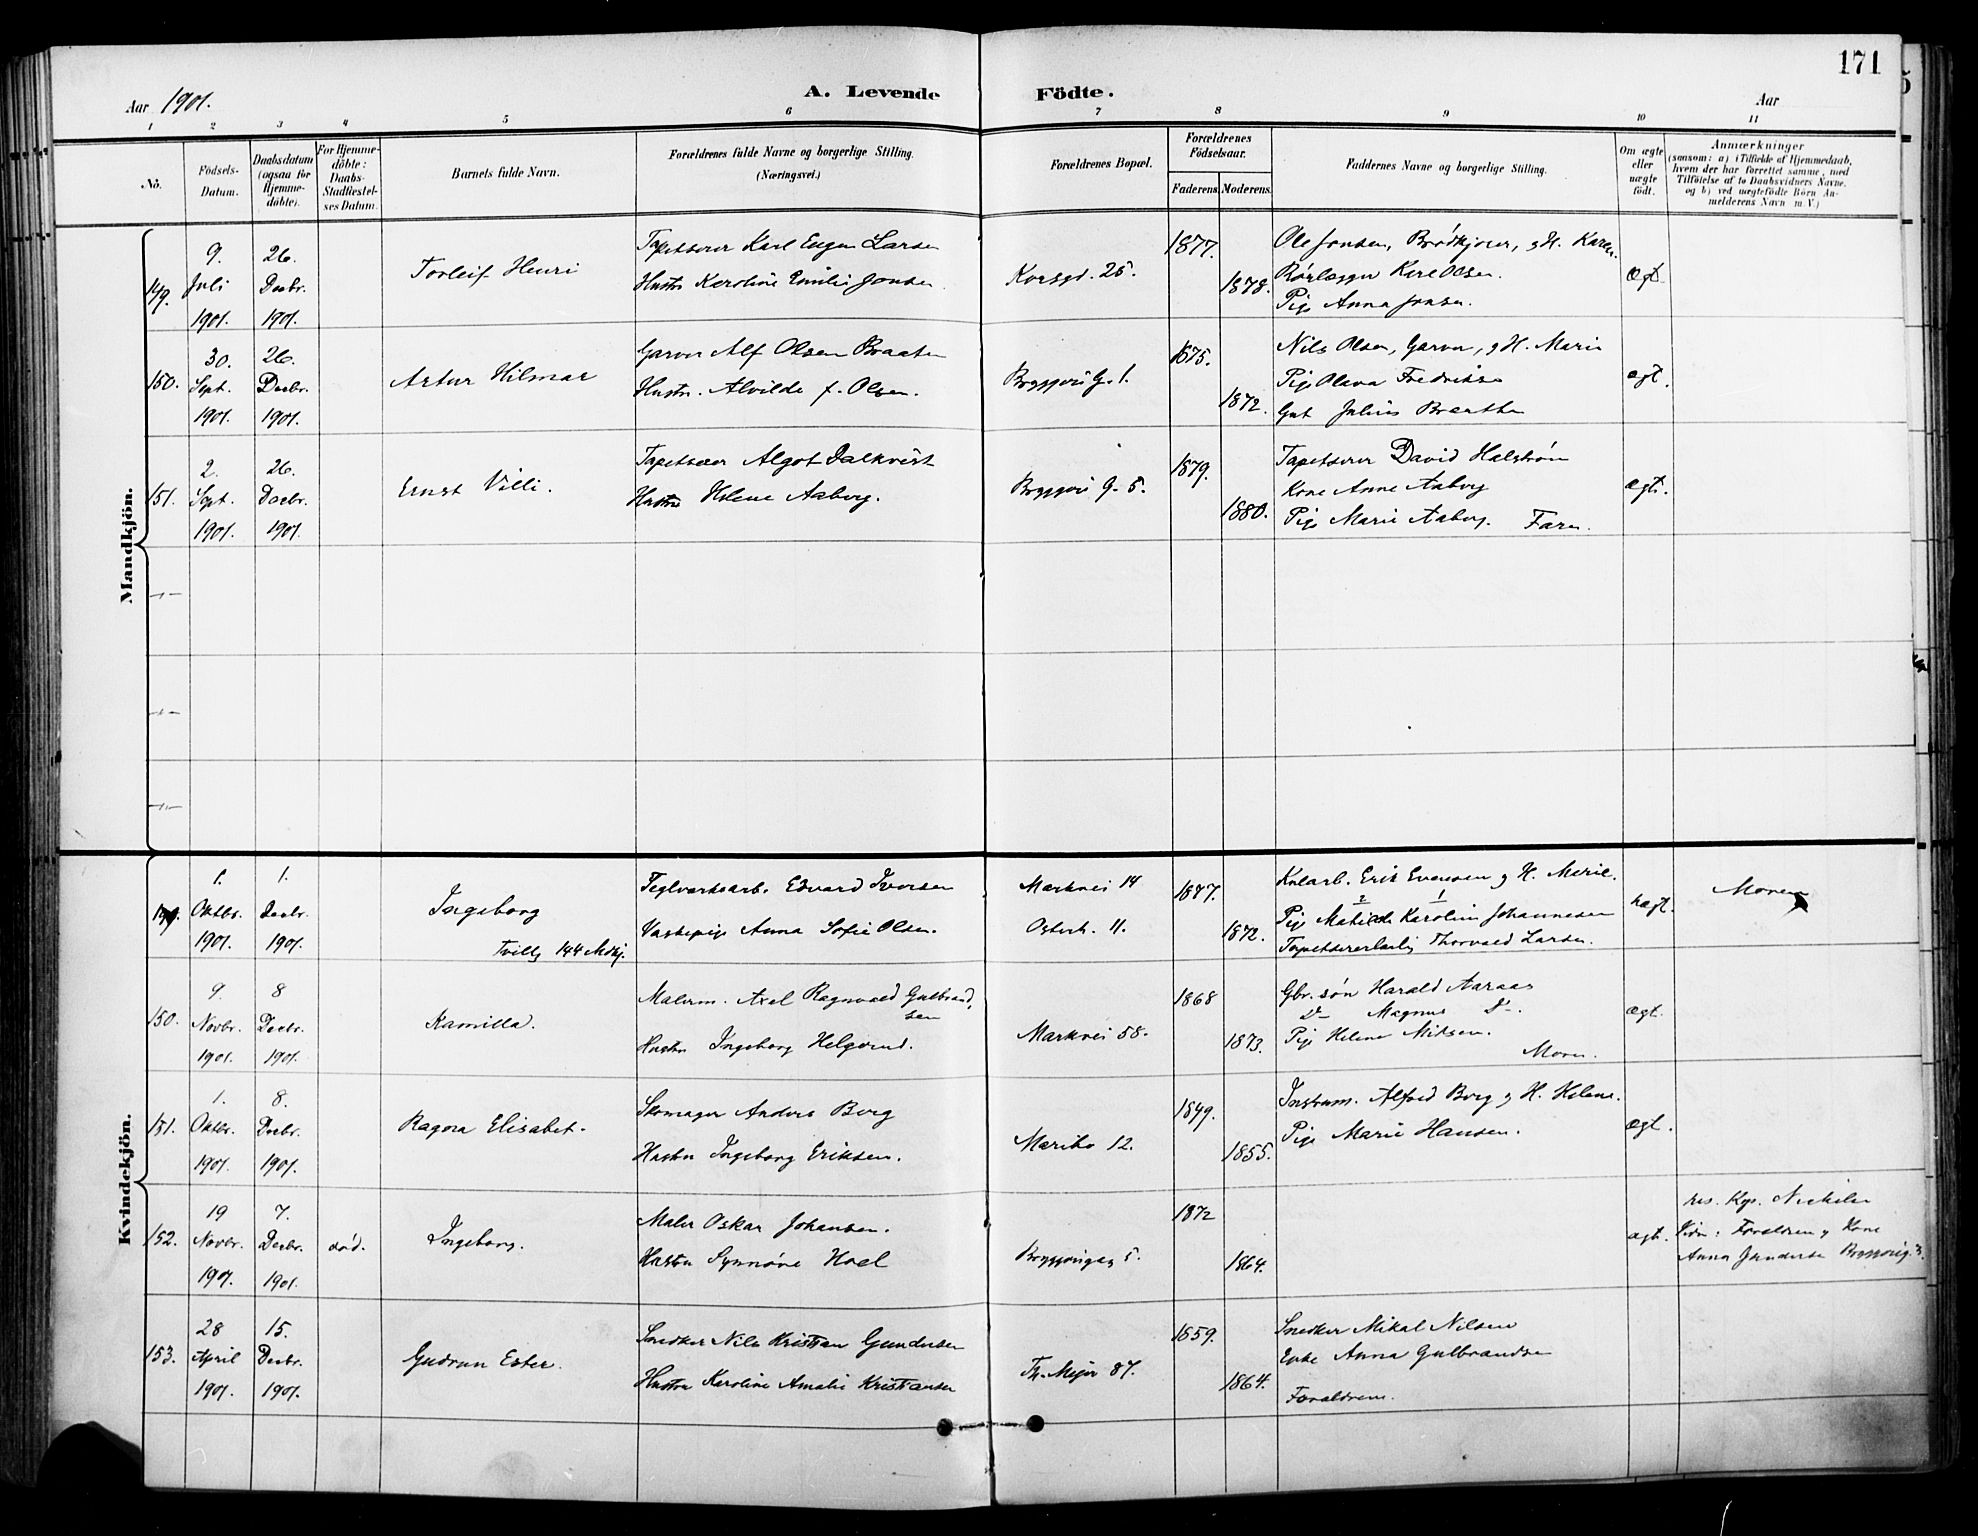 171
Aar 1901.
A. Levende Födte.
Aar
1 2 3 4 5 6 7 8 9 10 11
No.
Födsels-Datum.
Daabsdatum (ogsaa for Hjemme-döbte).
For Hjemme-döbte: Daabs-Stadfæstel-ses Datum.
Barnets fulde Navn.
Forældrenes fulde Navne og borgerlige Stilling.
(Næringsvei.)
Forældrenes Bopæl.
Forældrenes Födselsaar.
Faderens. Moderens.
Faddernes Navne og borgerlige Stilling.
Om ægte eller uægte födt.
Anmærkninger
(saasom: a) i Tilfælde af Hjemmedaab,
hvem der har forrettet samme, med
Tilföielse af to Daabsvidners Navne,
og b) ved uægtefödte Börn An-
melderens Navn m. V.)
Mandkjön.
149. 9. Juli 1901. 26. Decbr. 1901.
Torleif Henri
Tapetserer Karl Eugen Larsen
Hustru Karoline Emilie Jonsen
Korsgd. 25.
1877. 1878.
Ole Jonsen, Brödkjörer, og H. Karen.
Rörlægger Karl Olsen.
Pige Anna Jonsen.
ægt.
150. 30. Sept. 1901. 26. Decbr. 1901.
Artur Hilmar
Garver Alf Olsen Braaten
Hustr. Alvilde f. Olsen.
Bryggeri G. 1.
1875. 1872.
Nils Olsen, Garver, og H. Marie
Pige Olava Fredriksen
Gut Julius Braathen
ægt.
151. 2. Sept. 1901. 26. Decbr. 1901.
Ernst Villi.
Tapetserer Algot Dalkvist
Hustru Helene Aaberg.
Bryggeri G. 5.
1879. 1880.
Tapetserer David Halström
Kone Anne Aaberg
Pige Marie Aaberg. Faren.
ægt.
Kvindekjön.
149. 1. Oktbr. 1901. 1. Decbr. 1901.
Ingeborg
Tvill. 144 Mdkj.
Teglverksarb. Edvard Iversen
Vaskepige Anna Sofie Olsen.
Markvei 14
Osterh. 11.
1877. 1872.
Kularb. Erik Evensen og H. Marie.
Pige Matilde Karoline Johannesen
Tapetsererlærling Thorvald Larsen.
uægt.
Moren
150. 9. Novbr. 1901. 8 Decbr. 1901.
Kamilla.
Malerm. Axel Ragnvald Gulbrand-
sen
Hustru Ingeborg Helgerud.
Markvei 58.
1868 1873.
Gbr. søn Harald Aaraas
Do Magnus Do.
Pige Helene Nilsen.
Moren.
ægt.
151. 1. Oktbr. 1901. 8. Decbr. 1901.
Ragna Elisabet.
Skomager Anders Berg
Hustru Ingeborg Eriksen.
Maribo 12.
1849. 1855.
Instrum. Alfred Berg og H. Helene.
Pige Marie Hansen.
ægt.
152. 19 Novbr. 1901. 7. Decbr. 1901.
död.
Ingeborg.
Maler Oskar Johansen.
Hustru Synnöve Hoel
Bryggerigag 5.
1872 1864.
ægt.
res. Kap.
Vidn: Forældren og Kone
Anna
153. 28 April 1901. 15. Decbr. 1901.
Gudrun Ester.
Snedker Nils Kristian Gundersen
Hustru Karoline Amalie Kristiansen
Th. Meyer 87.
1859. 1864.
Snedker Mikal Nilsen
Enke Anna Gulbrandsen
Forældrene.